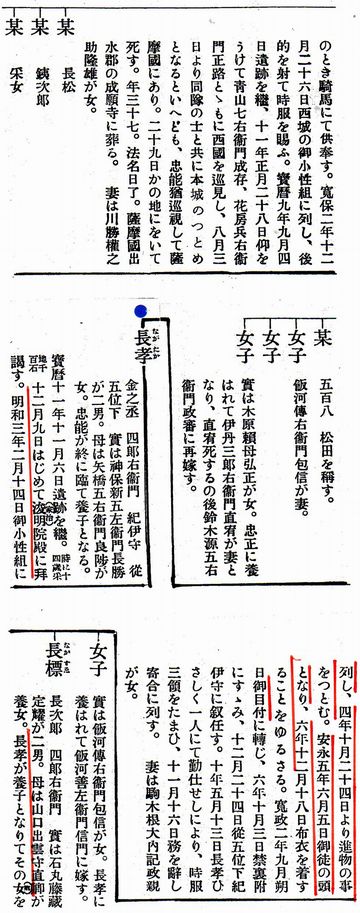 のとき騎馬にて供奉す。寬保二年十二
月二十六日西城の御小性組に列し、後
的を射て時服を賜ふ。寶曆九年九月四
日遺跡を繼、十一年正月二十八日仰を
うけて青山七右衞門成存、花房兵右衞
門正路とゝもに西國を巡見し、八月三
日より同隊の士と共に本城のつとめ
となるといへども、忠能猶巡視して薩
摩國にあり。二十九日かの地にをいて
死す。年三十七。法名日了。薩摩國出
水郡の成願寺に葬る。 妻は川勝權之
助隆雄が女。
某 長松
某 銕次郎
某 采女
某 五百八 松田を稱す。
女子 飯河傳右衞門包信が妻。
女子
女子 實は木原賴母弘正が女。忠正に養
はれて伊丹三郎右衞門直宥が妻と
なり、直宥死するの後鈴木源五右
衞門政審に再嫁す。
長孝 ながたか
金之丞 四郎右衞門 紀伊守 從
五位下 實は神保新五左衞門長勝
が二男。母は矢橋五右衞門良陟が
女。忠能が終に臨て養子となる。
寶曆十一年十一月六日遺跡を繼。時に十四歲采地千百石
十二月九日はじめて浚明院殿に拜
謁す。明和三年二月十四日御小性組に
列し、四年十月二十四日より進物の事
をつとむ。安永五年六月五日御徒の頭
となり、六年十二月十八日布衣を着す
ることをゆるさる。寬政二年九月朔
日御目付に轉じ、六年十月三日禁裏附
にすゝみ、十二月二十四日從五位下紀
伊守に敍任す。十年五月十三日長孝ひ
さしく一人にて勤仕せしにより、時服
三領をたまひ、十一月十六日務を辭し
寄合に列す。 妻は駒木根大內記政親
が女。
女子 實は飯河傳右衞門包信が女。長孝に
養はれて飯河善左衞門信門に嫁す。
長標 ながすゑ
長次郎 四郎右衞門 實は石丸藤藏
定耀が二男。母は山口出雲守直郷が
養女。長孝が養子となりてその女を